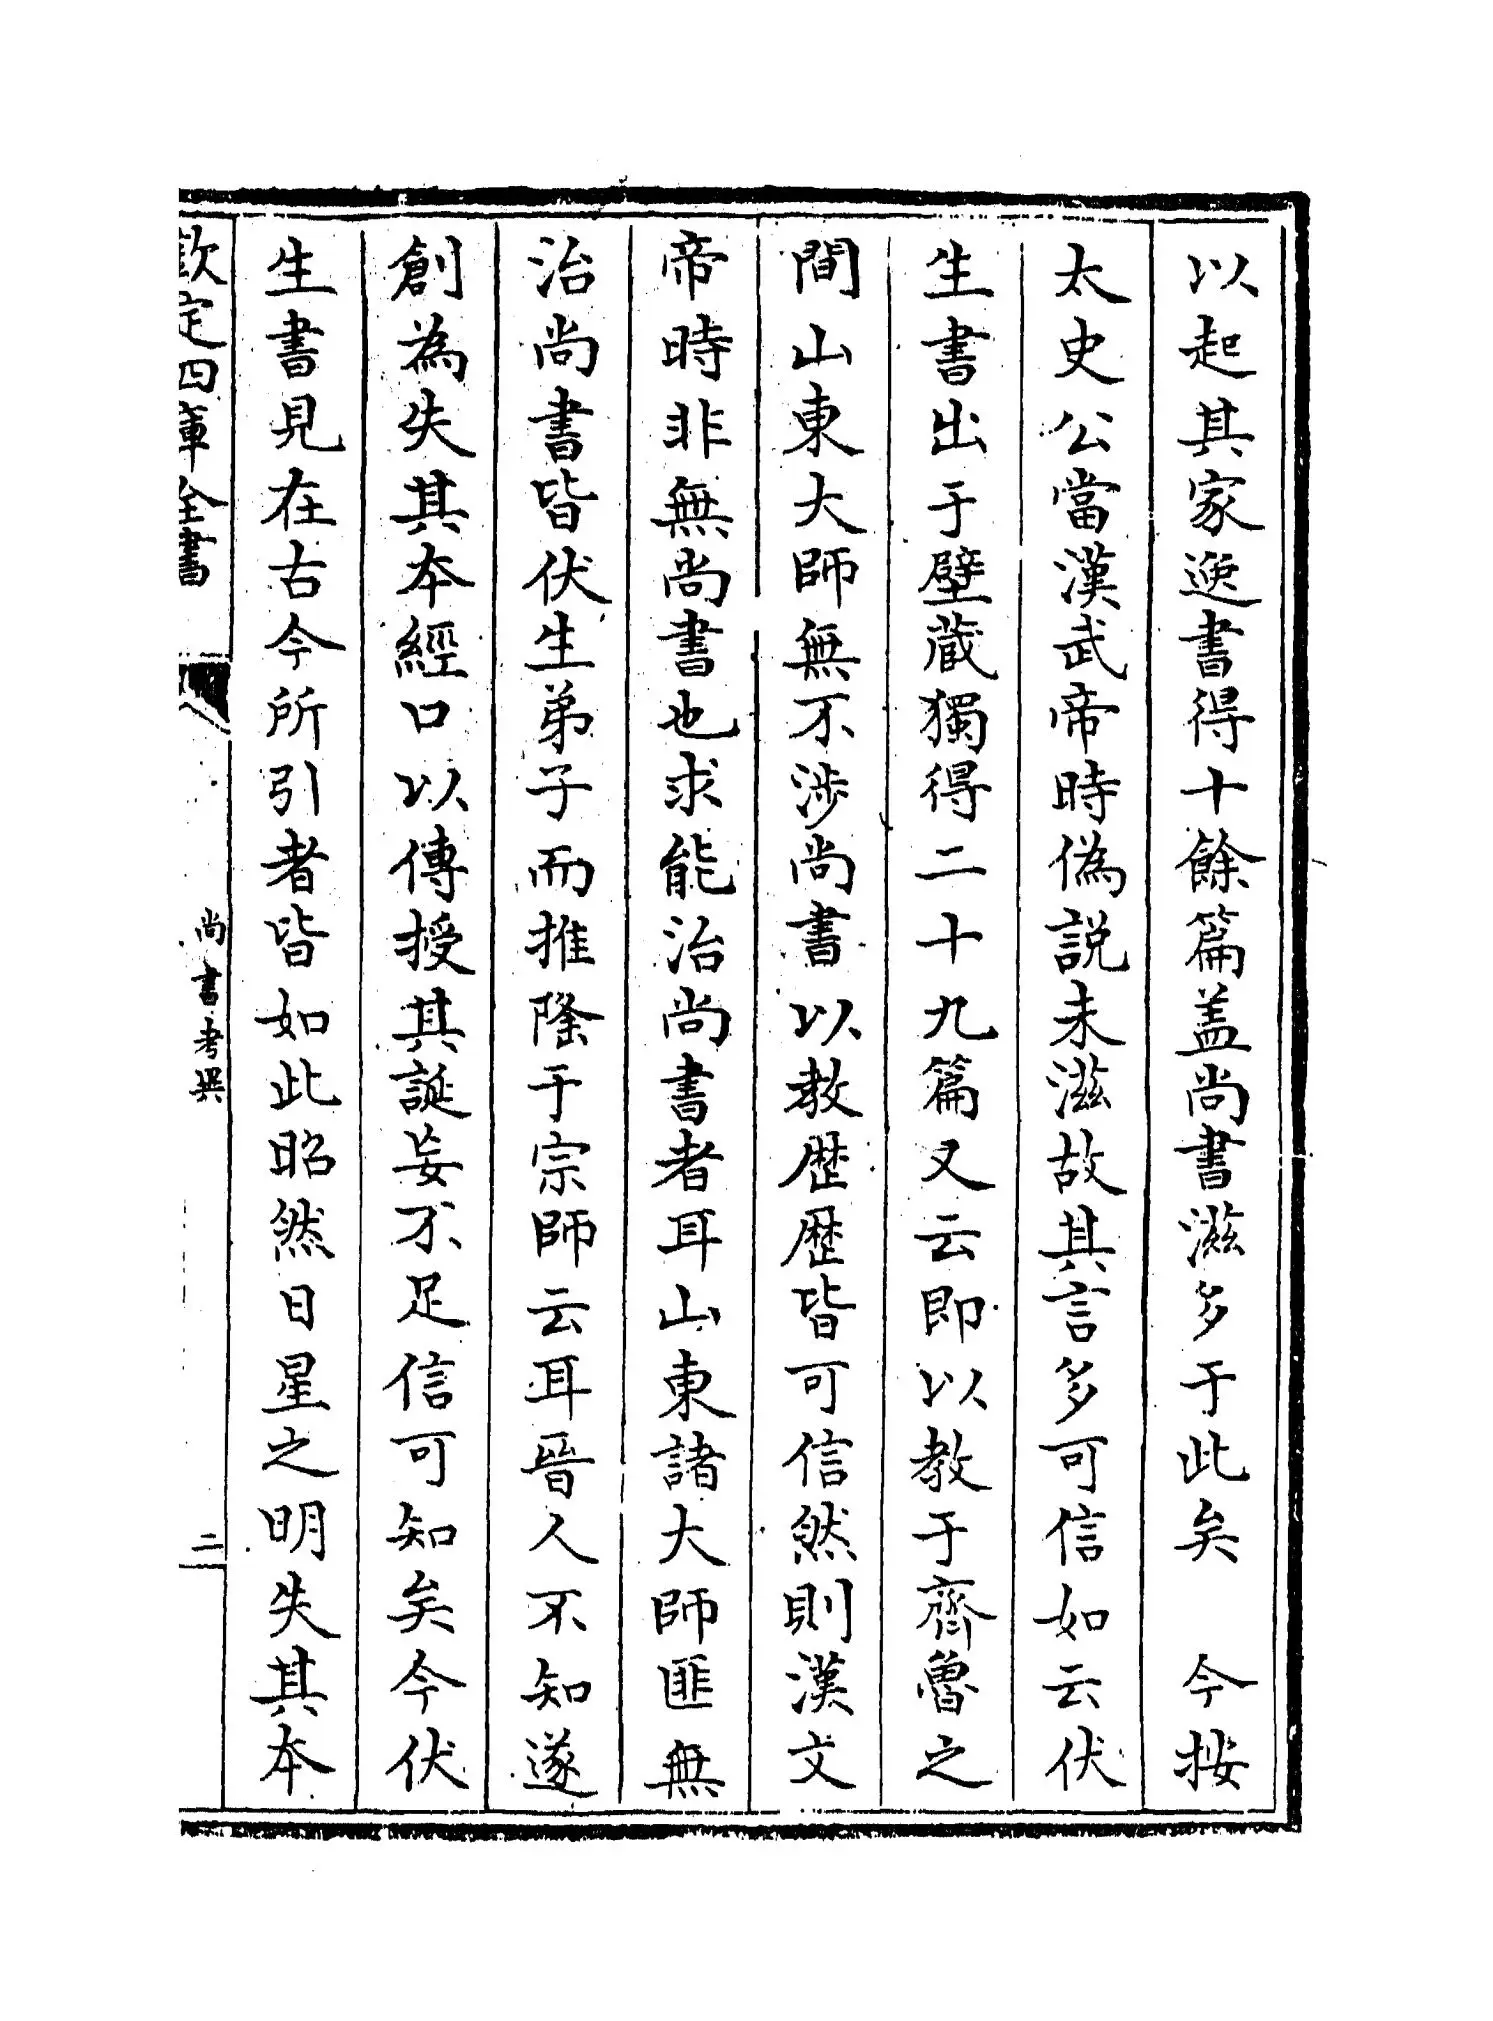 以起其家逸書得十餘篇盖尚書滋多于此矣　今按
太史公當漢武帝時偽説未滋故其言多可信如云伏
生書出于壁藏獨得二十九篇又云即以教于齊魯之
間山東大師無不渉尚書以教歴歴皆可信然則漢文
帝時非無尚書也求能治尚書者耳山東諸大師匪無
治尚書皆伏生弟子而推隆于宗師云耳晉人不知遂
創為失其本經口以傳授其誕妄不足信可知矣今伏
生書見在古今所引者皆如此昭然日星之明失其本
欽定四庫全書
尚書考異
二